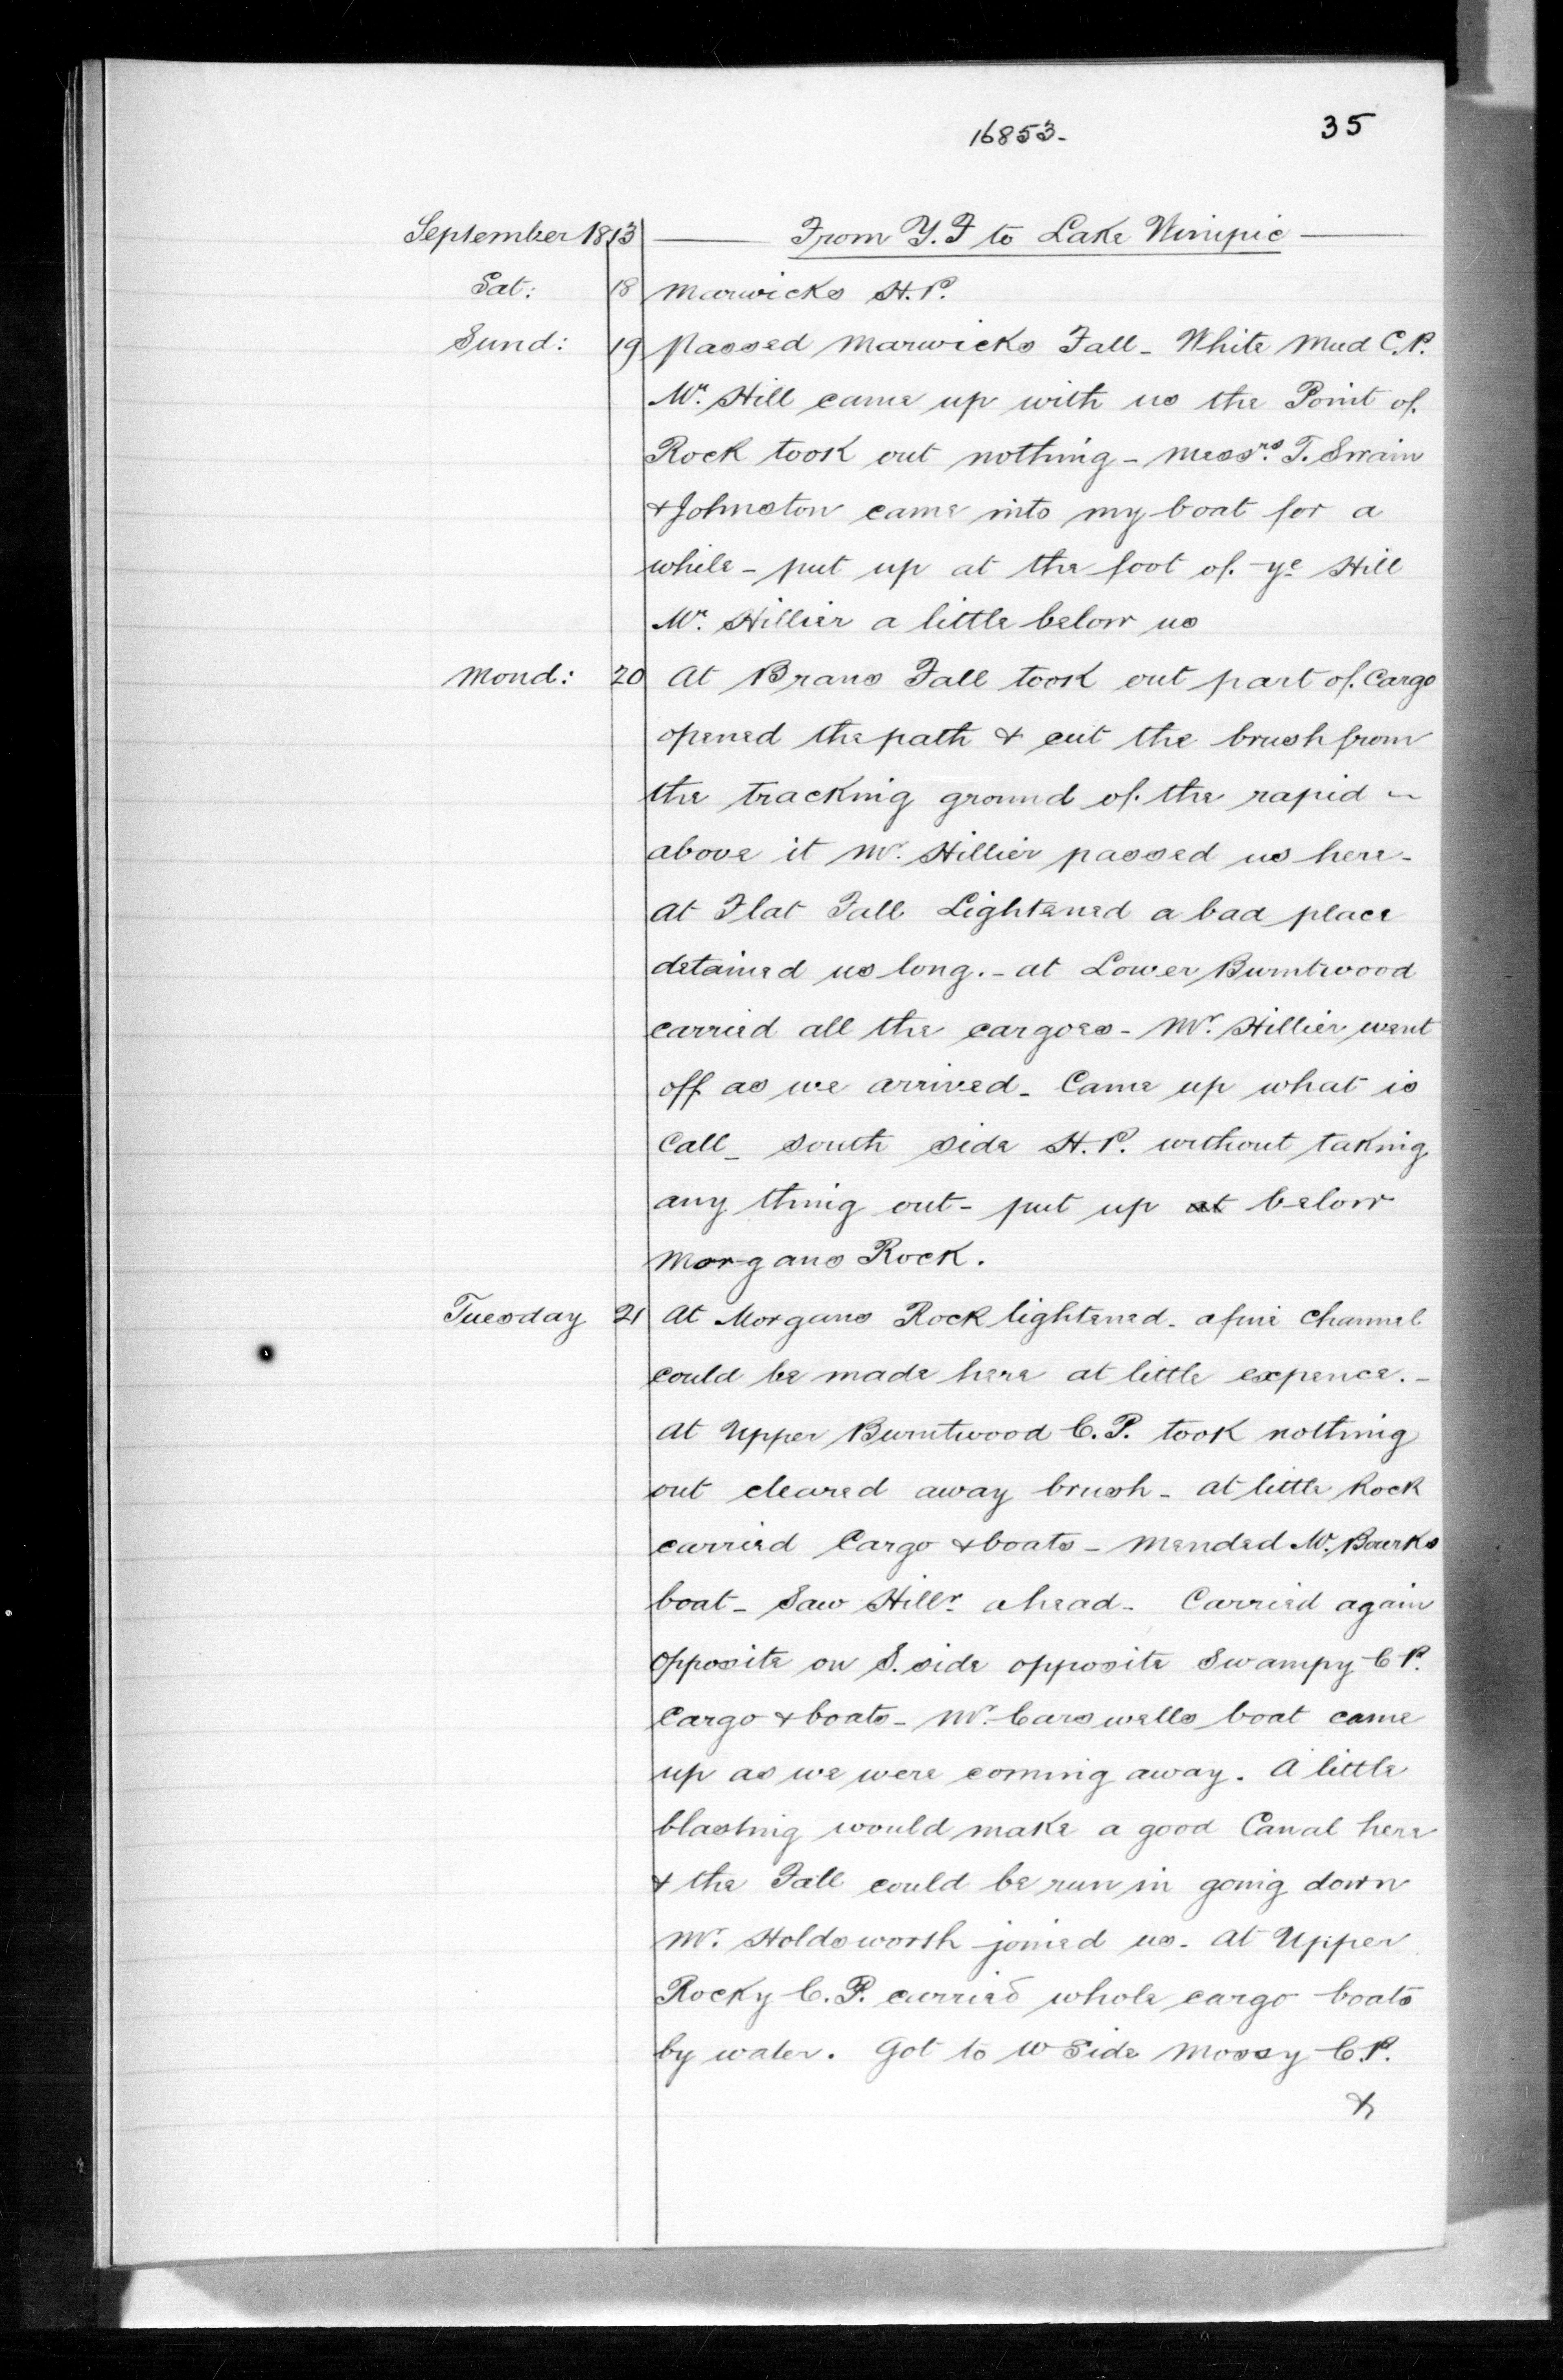 16853. 35
September 1813 From Y.F to Lake Winipic
Sat: 18 Marwicks H.P.
Sund: 19 Passed Marwicks Fall - White Mud C.P.
Mr. Hill came up with us the Point of
Rock took out nothing - Messrs. T. Swain
& Johnston came into my boat for a
while - put up at the foot of ye Hill
Mr. Hillier a little below us
Mond: 20 At Brans Fall took out part of Cargo
opened the path & cut the brush from
the tracking ground of the rapid -
above it Mr. Hillier passed us here -
at Flat Fall Lightened a bad place
detained us long. - at Lower Burntwood
carried all the cargoes - Mr. Hillier went
off as we arrived - Came up what is
Call - south side H.P. without taking
any thing out - put up at below
Morgans Rock.
Tuesday 21 At Morgans Rock lightened - a fine Channel
could be made here at little expence. -
At Upper Burntwood C.P. took nothing
out cleared away brush - at little Rock
carried Cargo & boats - mended Mr. Bourks
boat - Saw Hillr. ahead - Carried again
opposite on S. side opposite Swampy C P.
Cargo & boats - Mr. Carswells boat came
up as we were coming away. A little
blasting would make a good Canal here
& the Fall could be run in going down
Mr. Holdsworth joined us - at Upper
Rocky C.P. carried whole cargo boats
by water. Got to W Side Mossy C.P.
&